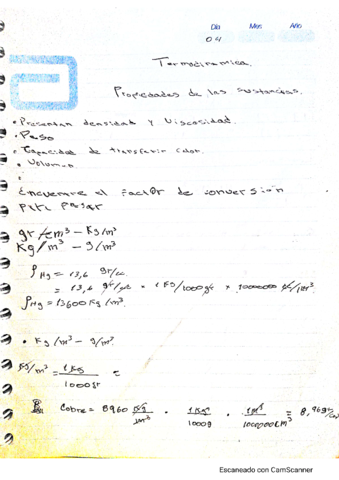 Dia Mes Año
04
Termodinamica.
Propiedades de las sustancias.
• Presentan densidad y Viscosidad.
• Peso
• Capacidad de transferir calor.
• Volumen
•
Encuentre el factor de conversión
para pasar
gr/cm³ - Kg/m³
Kg/m³ - g/m³
ρHg = 13,6 gr/cc
= 13,6 gr/cc × 1 KG/1000 gr × 1000000 cc/1m³
ρHg = 13600 Kg/m³.
• Kg/m³ - g/m³
KG/m³ = 1 KG / 1000 gr =
Cobre = 8960 Kg/m³ · 1 KG/1000g · 1m³/1000000 cm³ = 8,96 gr/cm³
Escaneado con CamScanner